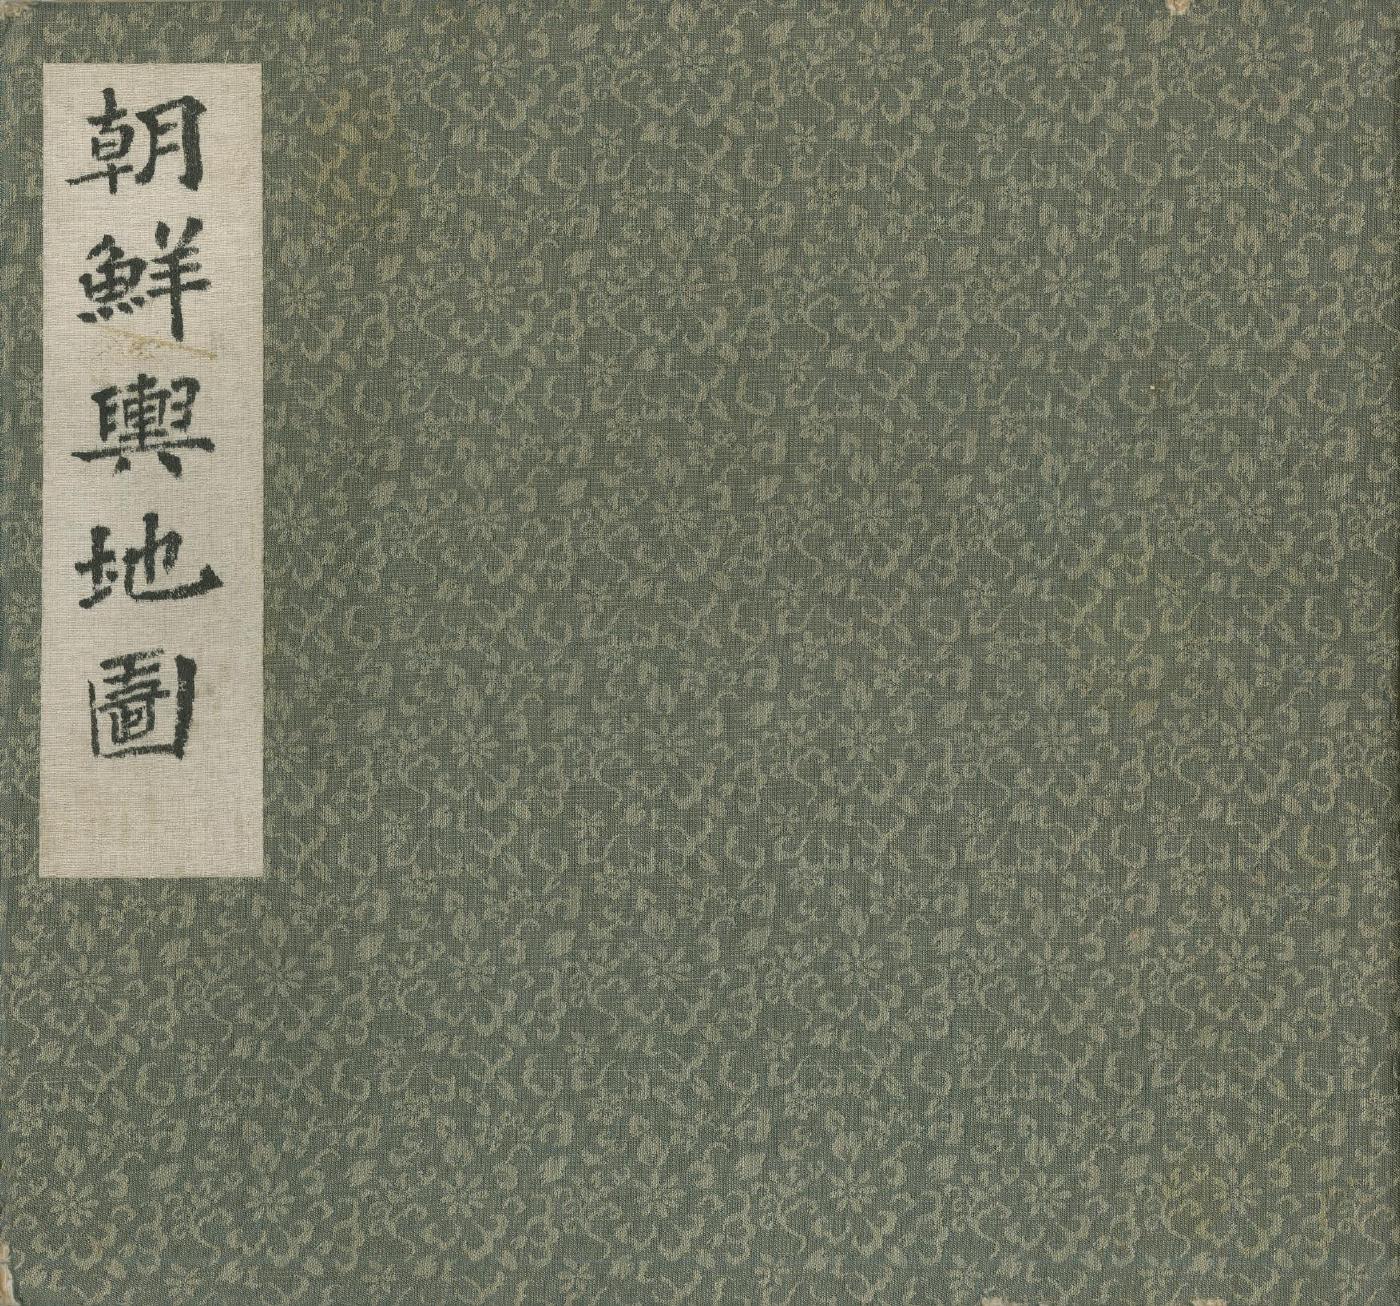 朝鮮輿地圖